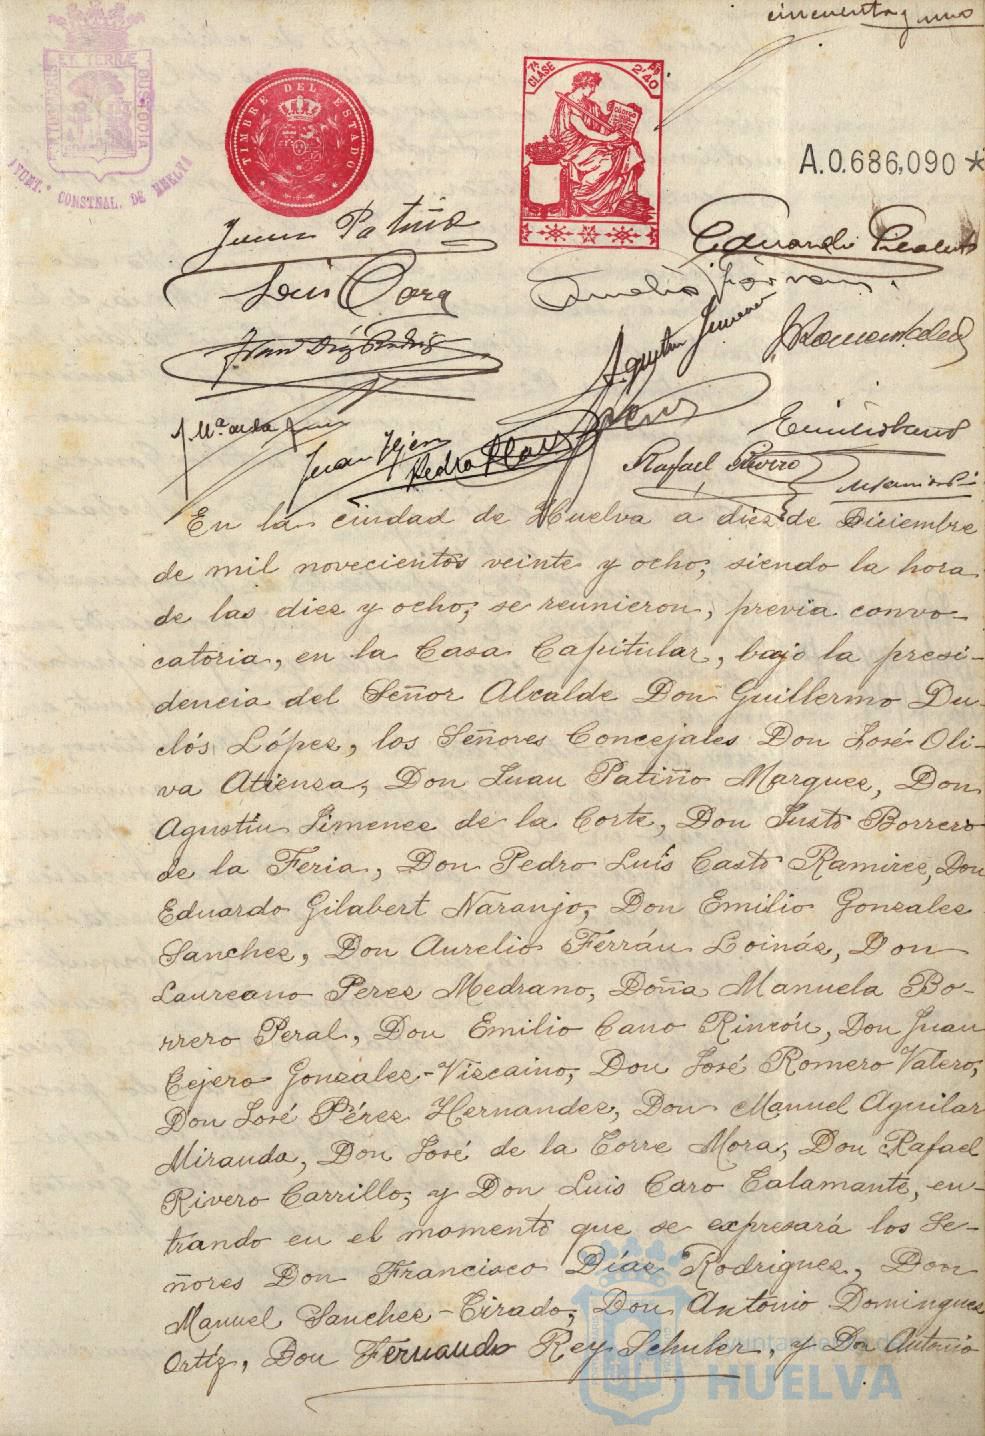 cincuenta y uno
ET TERRAE
CUSTODIA
AYUNT.º CONSTNAL. DE HUELVA
TIMBRE DEL ESTADO
7ª CLASE
2'40
A.0.686,090 *
Juan Patiño
Eduardo
Luis Caro
Agustin Jimenez
J. Romero
Fran Díaz Rodrig
Juan Tejero
Pedro
Emilio Cano
Rafael Rivero
En la ciudad de Huelva á diez de Diciembre
de mil novecientos veinte y ocho, siendo la hora
de las diez y ocho, se reunieron, previa convo-
catoria, en la Casa Capitular, bajo la presi-
dencia del Señor Alcalde Don Guillermo Du-
clós López, los Señores Concejales Don José Oli-
va Atienza, Don Juan Patiño Marquez, Don
Agustin Jimenez de la Corte, Don Justo Borrero
de la Feria, Don Pedro Luís Casto Ramirez, Don
Eduardo Gilabert Naranjo, Don Emilio Gonzalez
Sanchez, Don Aurelio Ferrán Loináz, Don
Laureano Perez Medrano, Doña Manuela Bo-
rrero Peral, Don Emilio Cano Rincón, Don Juan
Tejero Gonzalez-Vizcaino, Don José Romero Valero,
Don José Pérez Hernandez, Don Manuel Aguilar
Miranda, Don José de la Torre Mora, Don Rafael
Rivero Carrillo, y Don Luis Caro Talamante, en-
trando en el momento que se expresará los Se-
ñores Don Francisco Díaz Rodriguez, Don
Manuel Sanchez-Tirado, Don Antonio Dominguez
Ortíz, Don Fernando Rey Schuler, y Don Antonio
Ayuntamiento de
HUELVA